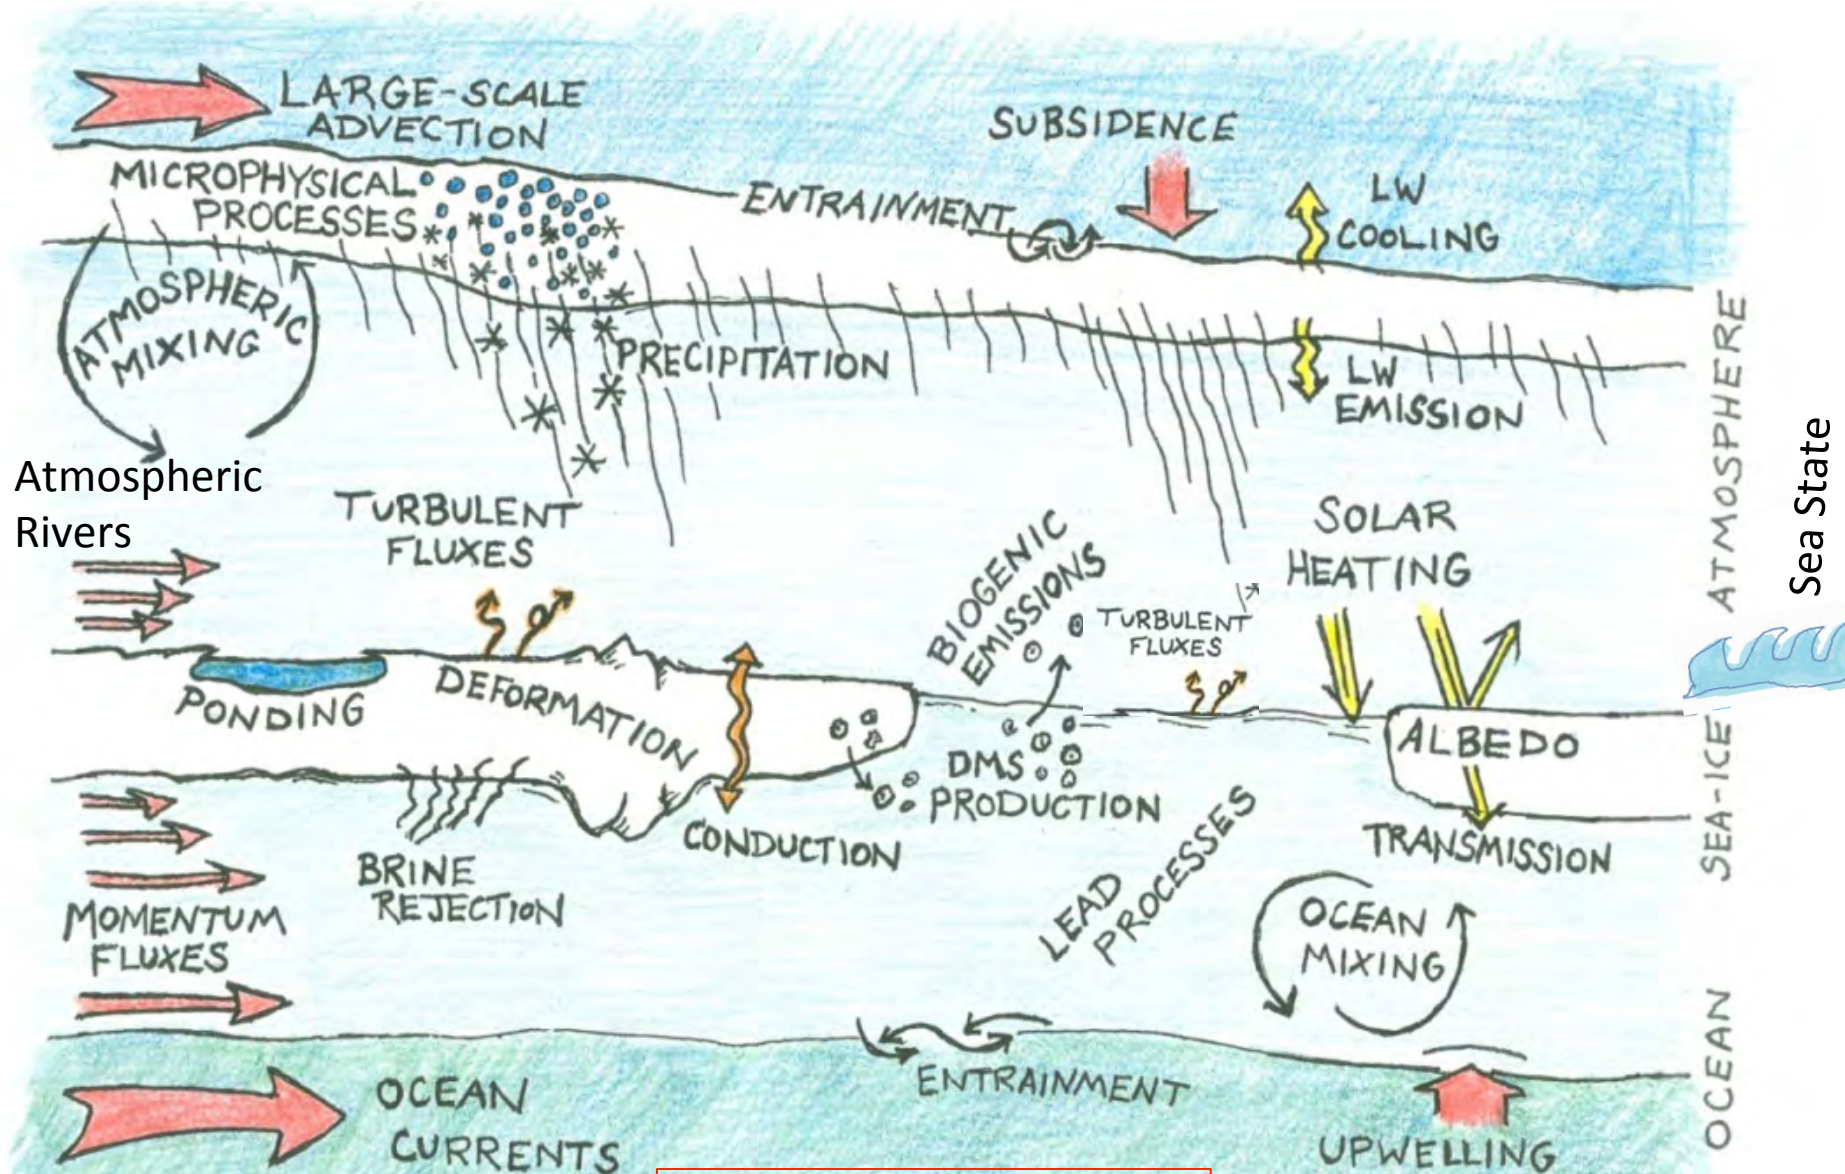 LARGE-SCALE
ADVECTION
SUBSIDENCE
MICROPHYSICAL
PROCESSES
ENTRAINMENT
LW
COOLING
ATMOSPHERIC
MIXING
PRECIPITATION
LW
EMISSION
Atmospheric
Rivers
TURBULENT
FLUXES
SOLAR
HEATING
BIOGENIC
EMISSIONS
TURBULENT
FLUXES
PONDING
DEFORMATION
ALBEDO
DMS
PRODUCTION
CONDUCTION
TRANSMISSION
BRINE
REJECTION
LEAD
PROCESSES
MOMENTUM
FLUXES
OCEAN
MIXING
ENTRAINMENT
OCEAN
CURRENTS
UPWELLING
ATMOSPHERE
SEA-ICE
OCEAN
Sea State